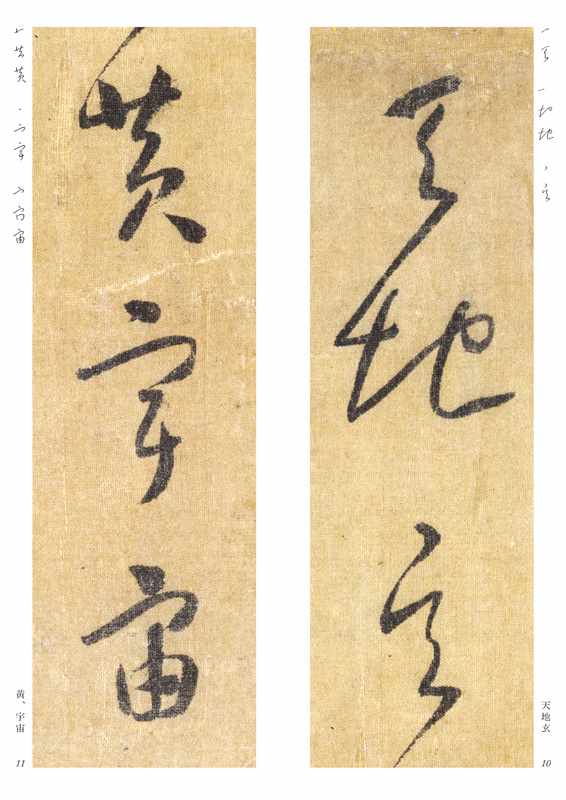 天地玄
黄宇宙
天地玄
10
黄、宇宙
11